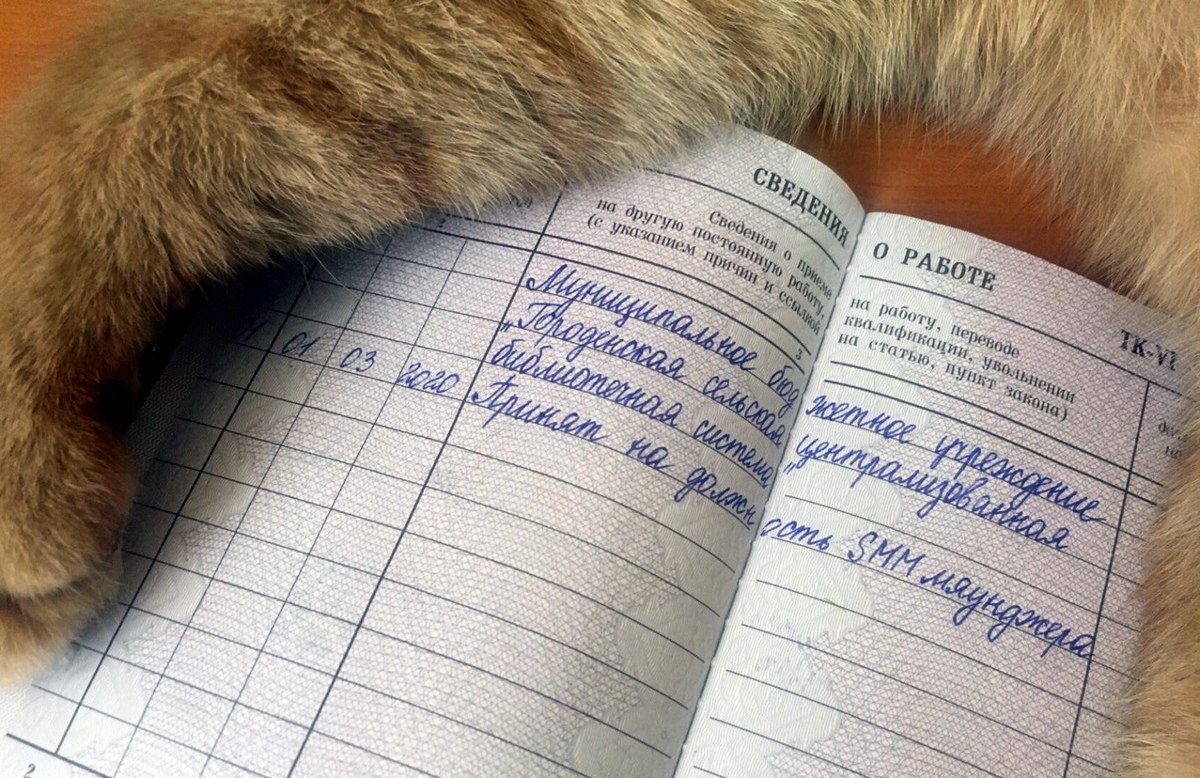 СВЕДЕНИЯ О РАБОТЕ
ТК-VI
Сведения о приеме на работу, переводе
на другую постоянную работу, квалификации, увольнении
(с указанием причин и ссылкой на статью, пункт закона)
3
Муниципальное бюджетное учреждение
„Городенская сельская централизованная
библиотечная система„
01 03 2020 Принят на должность SMM мяунджера
2